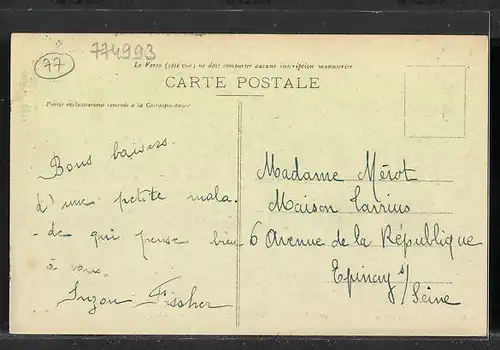 77
774993
Le Verso (côté vue) ne doit comporter aucune inscription manuscrite
CARTE POSTALE
Partie exclusivement réservée à la Correspondance
Bons baisers.
d'une petite mala-
-de qui pense bien
à vous.
Suzon Fischer
Madame Mérot
Maison
6 Avenue de la République
Epinay s/
Seine